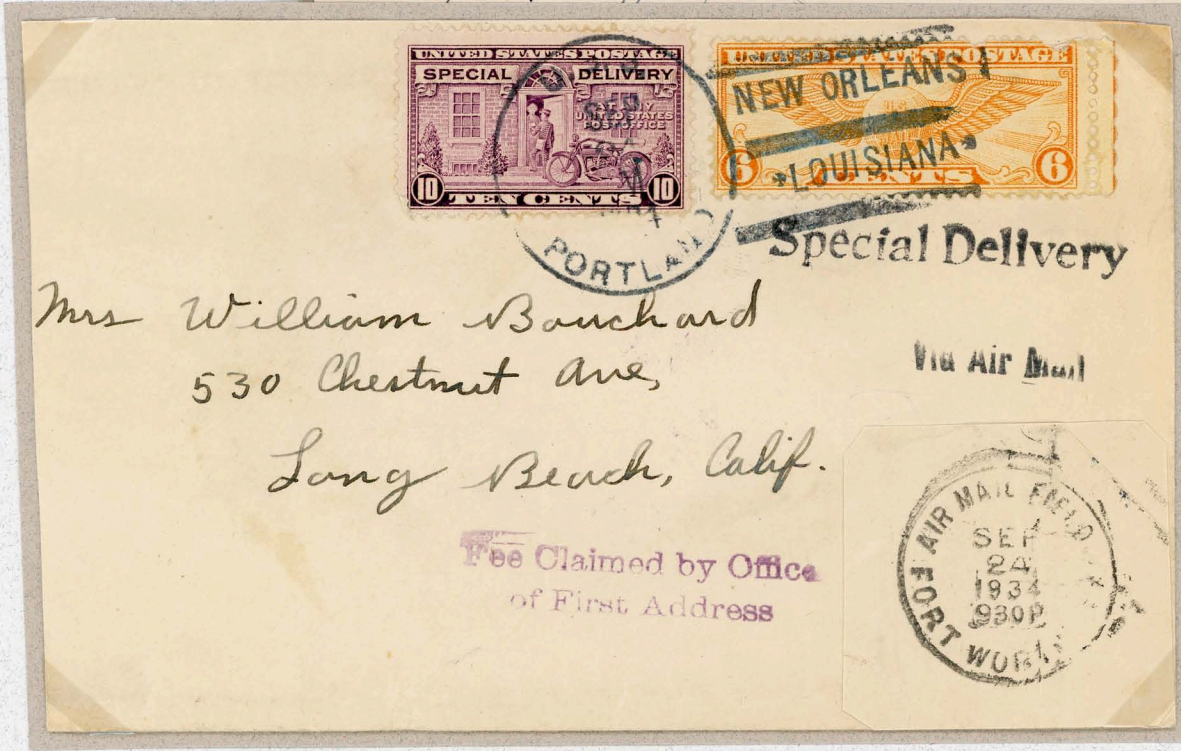 UNITED STATES POSTAGE
SPECIAL DELIVERY
AT ANY
UNITED STATES
POST OFFICE
10 10
TEN CENTS
UNITED STATES POSTAGE
6 CENTS 6
NEW ORLEANS
LOUISIANA
SEP
PORTLAND
Special Delivery
Mrs William Bouchard
530 Chestnut Ave,
Long Beach, Calif.
Via Air Mail
Fee Claimed by Office
of First Address
AIR MAIL FIELD
SEP
24
1934
930P
FORT WORTH